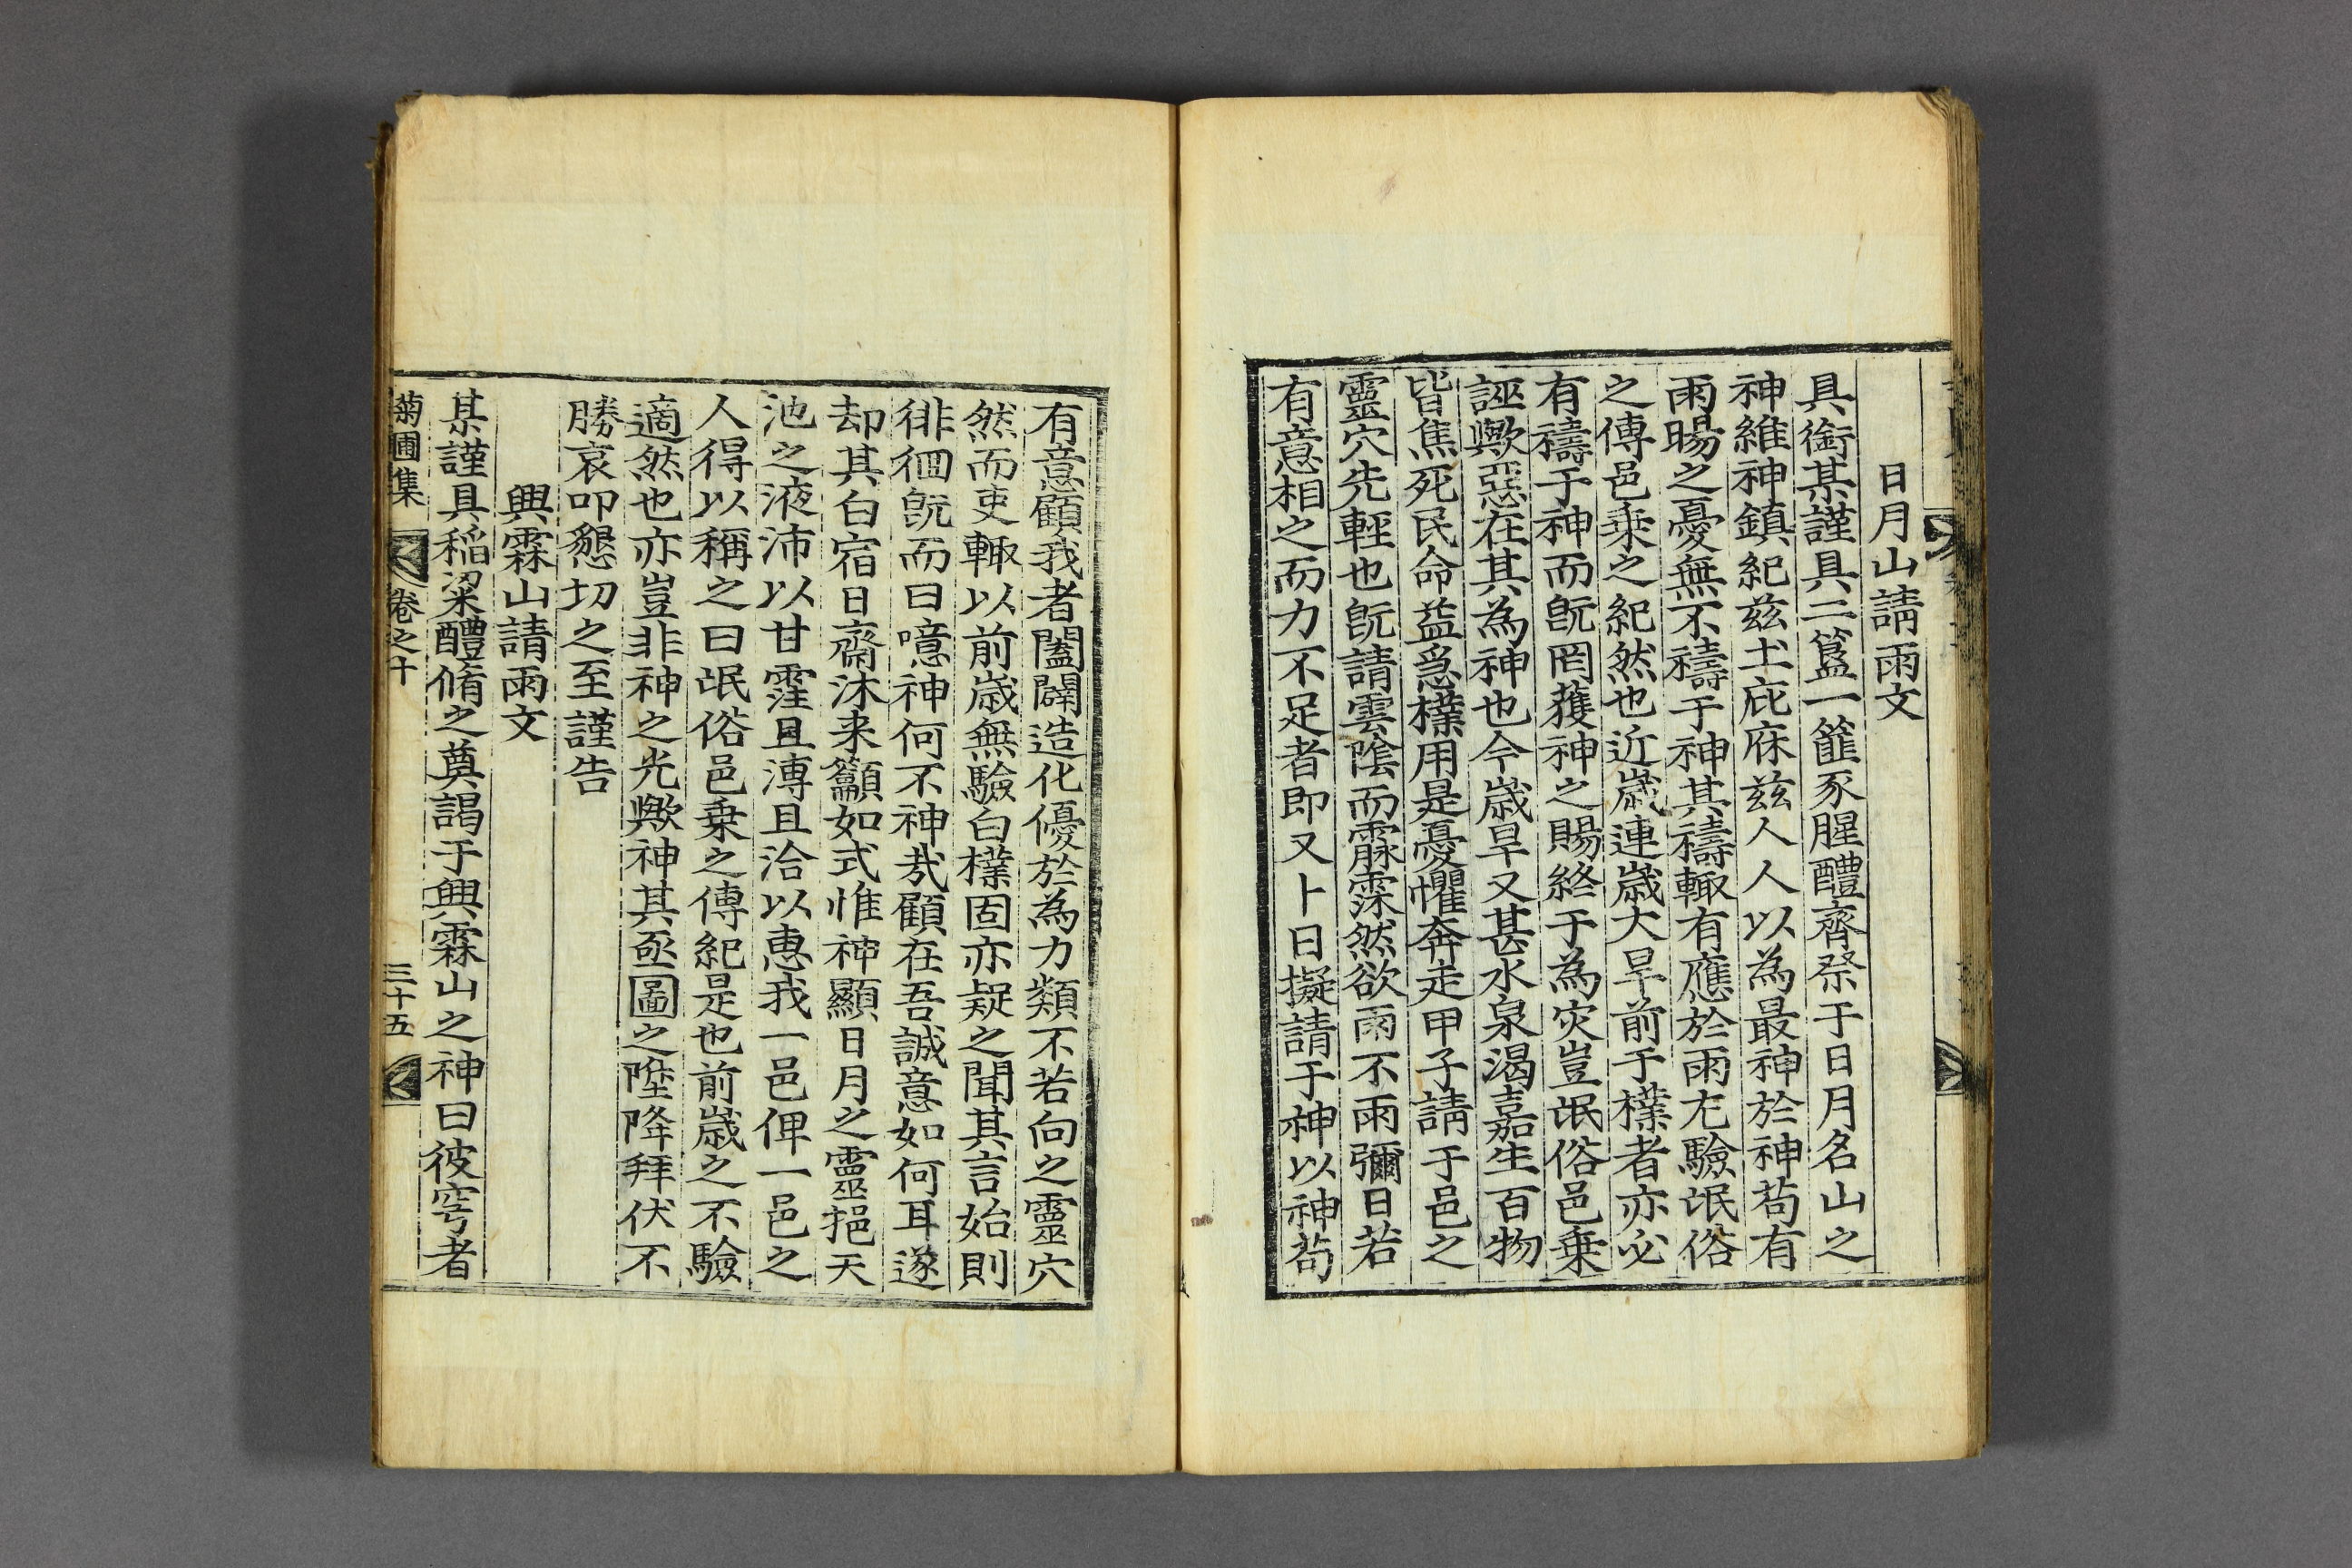 日月山請雨文
具銜某謹具二簋一篚豕腥醴齊祭于日月名山之
神維神鎮紀茲土庇庥茲人人以為最神於神苟有
雨暘之憂無不禱于神其禱輙有應於雨尤驗氓俗
之傳邑乗之紀然也近歲連歲大旱前于檏者亦必
有禱于神而旣罔獲神之賜終于為灾豈氓俗邑乗
誣歟惡在其為神也今歲旱又甚水泉渴嘉生百物
皆焦死民命益急檏用是憂懼奔走甲子請于邑之
靈穴先輕也旣請雲隂而霢霂然欲雨不雨彌日若
有意相之而力不足者即又卜日擬請于神以神苟
有意顧我者闔闢造化優於為力類不若向之靈穴
然而吏輙以前歲無驗白檏固亦疑之聞其言始則
徘徊旣而曰噫神何不神㦲顧在吾誠意如何耳遂
却其白宿日齋沐来籲如式惟神顯日月之靈挹天
池之液沛以甘霔且漙且洽以惠我一邑俾一邑之
人得以稱之曰氓俗邑乗之傳紀是也前歲之不驗
適然也亦豈非神之光歟神其亟圖之陞降拜伏不
勝哀叩懇切之至謹告
興霖山請雨文
某謹具稻粱醴脩之奠謁于興霖山之神曰彼穹者
菊圃集
卷之十
三十五